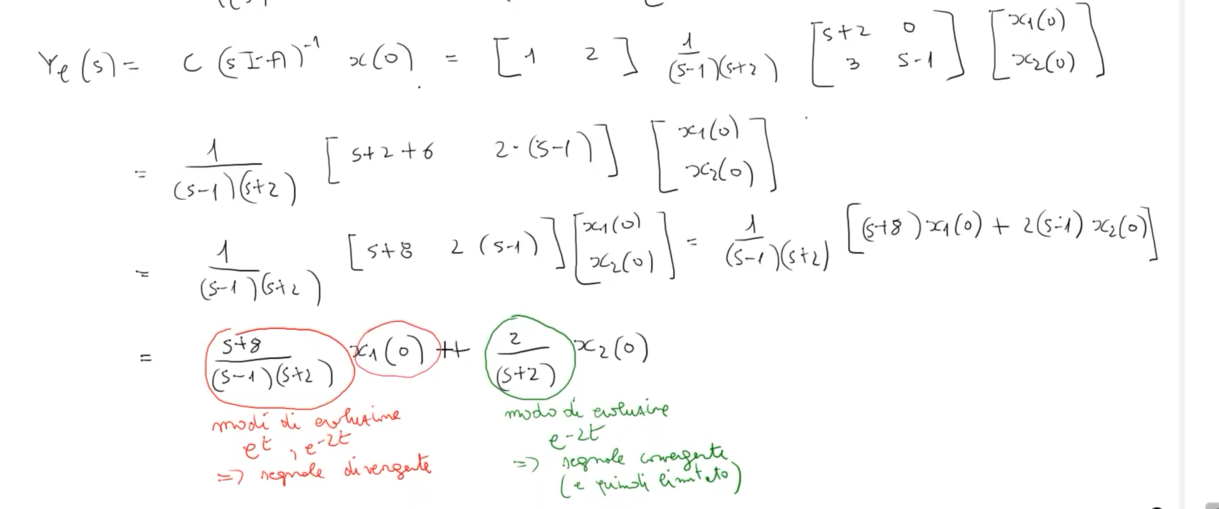 Yℓ(s) = C (sI-A)⁻¹ x(0) = [ 1 2 ] 1/((s-1)(s+2)) [ s+2 0 ; 3 s-1 ] [ x1(0) ; x2(0) ]
= 1/((s-1)(s+2)) [ s+2+6 2·(s-1) ] [ x1(0) ; x2(0) ]
= 1/((s-1)(s+2)) [ s+8 2(s-1) ] [ x1(0) ; x2(0) ] = 1/((s-1)(s+2)) [ (s+8)x1(0) + 2(s-1)x2(0) ]
= (s+8)/((s-1)(s+2)) x1(0) ++ 2/(s+2) x2(0)
modi di evoluzione
e^t, e^-2t
=> segnale divergente
modo di evoluzione
e^-2t
=> segnale convergente
(e quindi limitato)